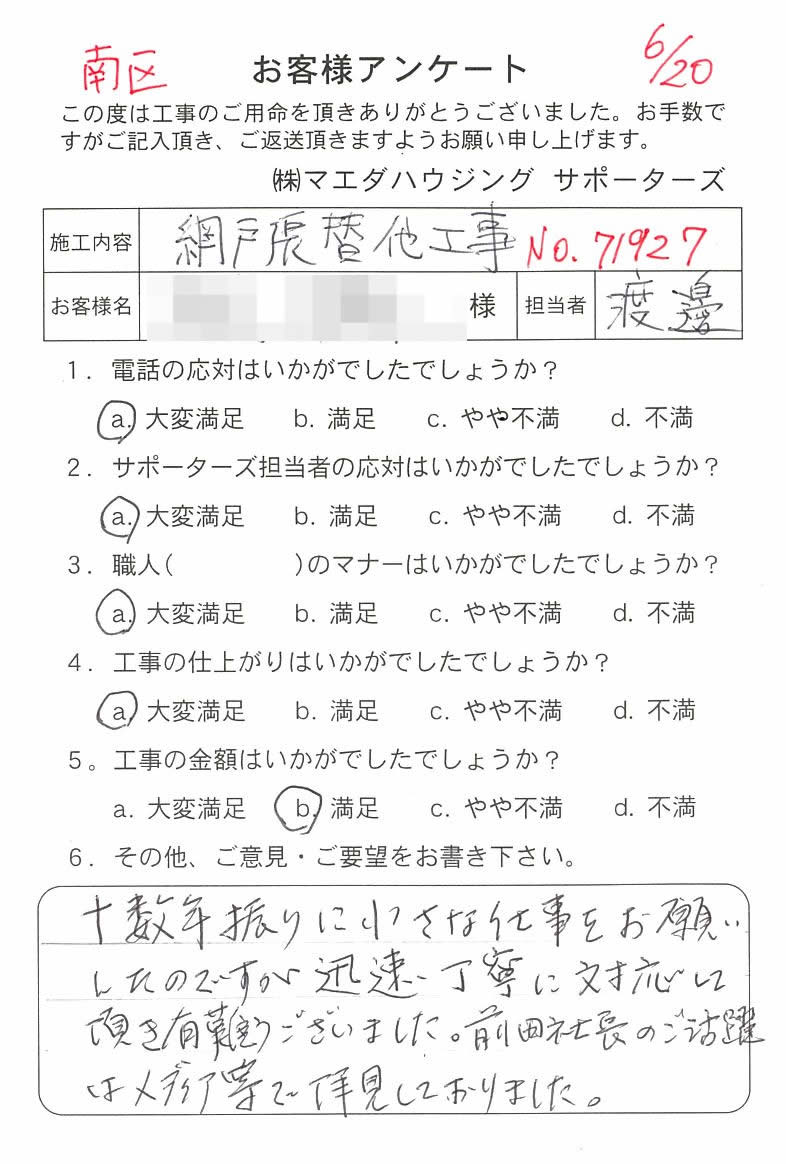 南区 お客様アンケート 6/20
この度は工事のご用命を頂きありがとうございました。お手数で
すがご記入頂き、ご返送頂きますようお願い申し上げます。
㈱マエダハウジング サポーターズ
施工内容 網戸張替他工事 No. 71927
お客様名 様 担当者 渡邊
1. 電話の応対はいかがでしたでしょうか？
a. 大変満足 b. 満足 c. やや不満 d. 不満
2. サポーターズ担当者の応対はいかがでしたでしょうか？
a. 大変満足 b. 満足 c. やや不満 d. 不満
3. 職人( )のマナーはいかがでしたでしょうか？
a. 大変満足 b. 満足 c. やや不満 d. 不満
4. 工事の仕上がりはいかがでしたでしょうか？
a. 大変満足 b. 満足 c. やや不満 d. 不満
5。工事の金額はいかがでしたでしょうか？
a. 大変満足 b. 満足 c. やや不満 d. 不満
6. その他、ご意見・ご要望をお書き下さい。
十数年振りに小さな仕事をお願い
したのですが迅速、丁寧に対応して
頂き有難うございました。前田社長のご活躍
はメディア等で拝見しておりました。